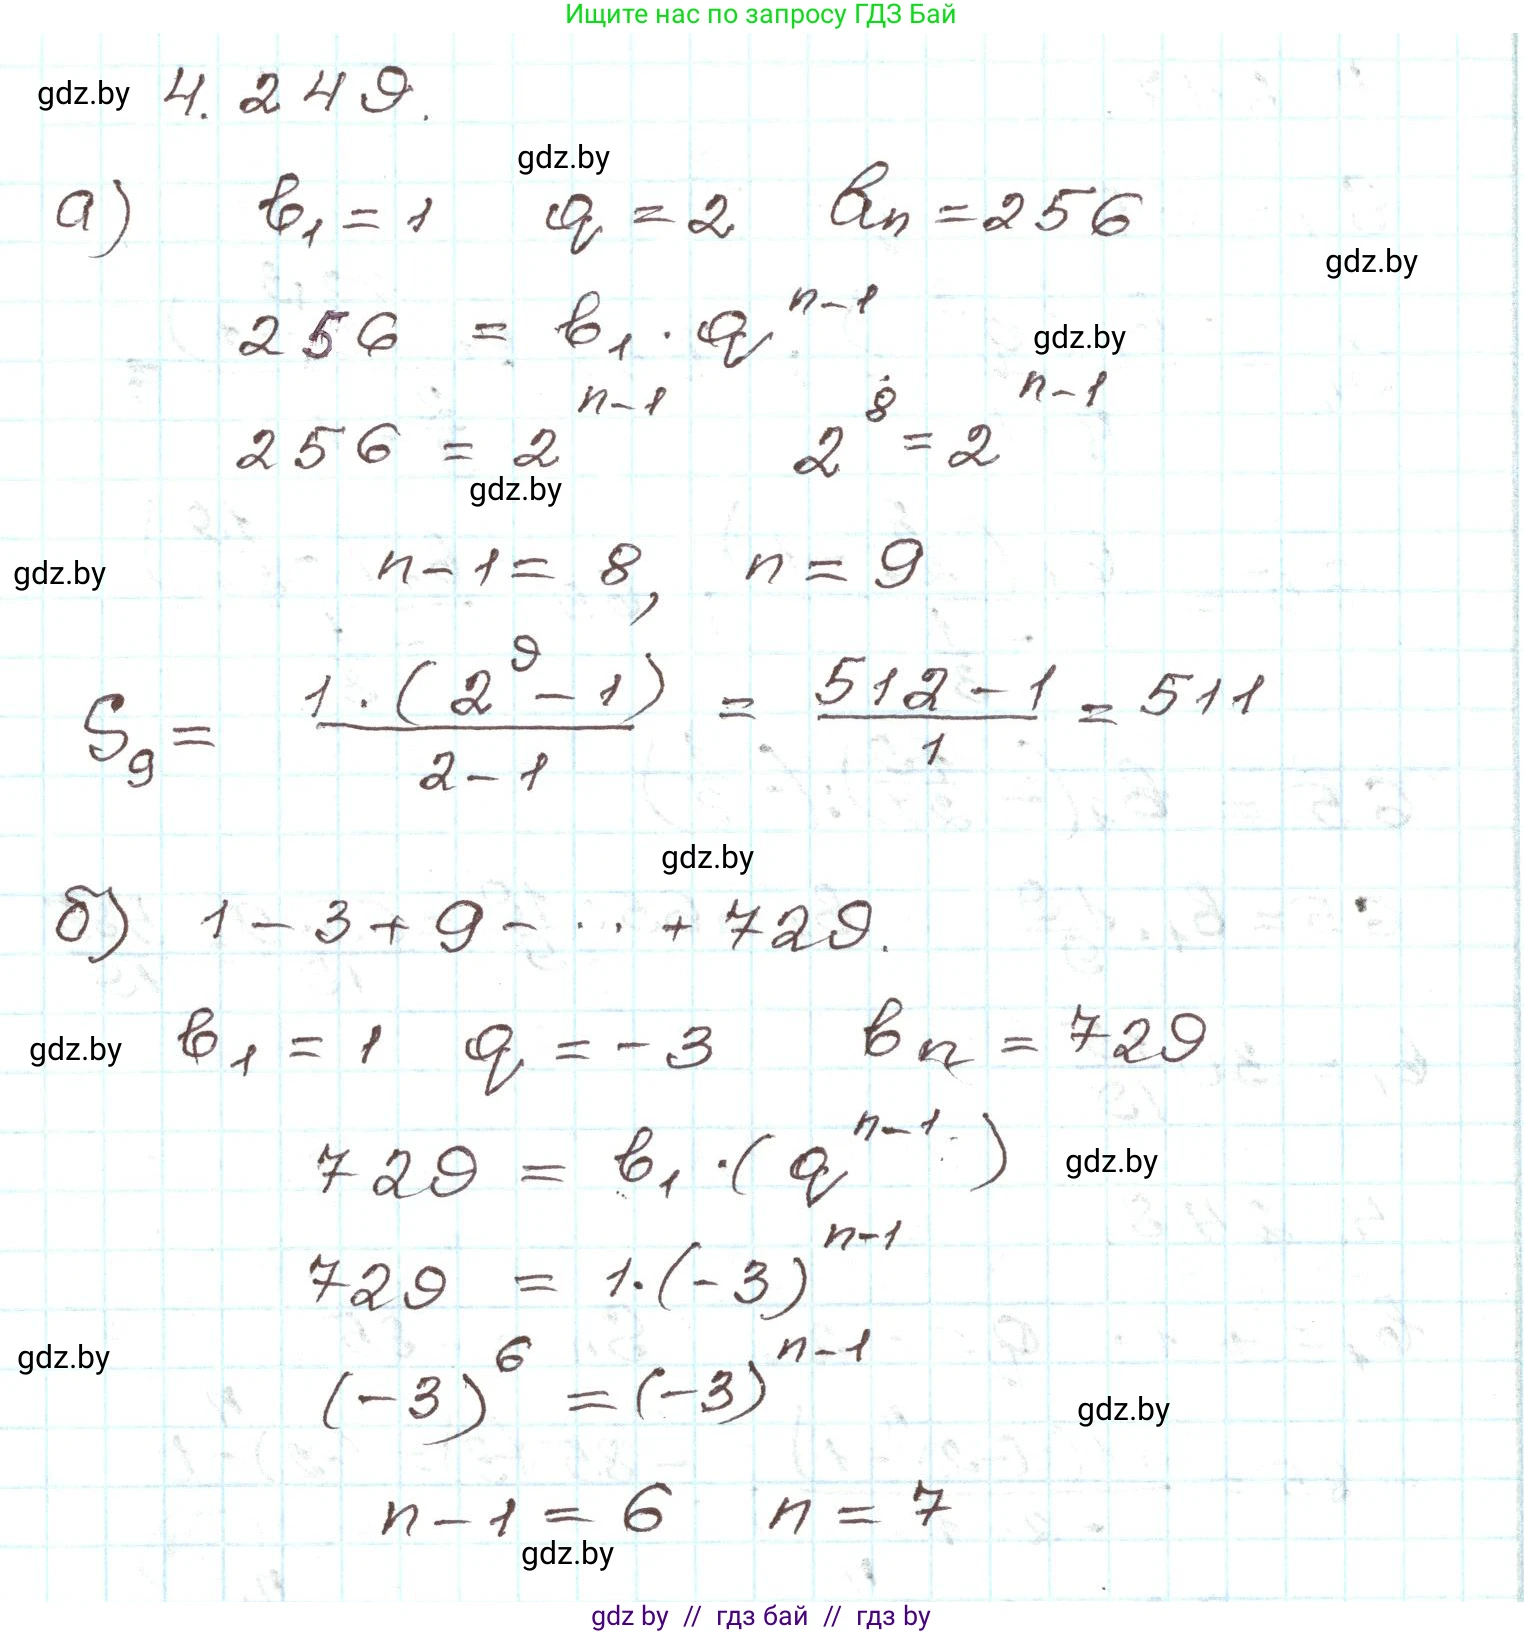 Ищите нас по запросу ГДЗ Бай
gdz.by 4.249.
gdz.by
а) b₁ = 1 q = 2 bₙ = 256
gdz.by
256 = b₁ · q^(n-1)
gdz.by
256 = 2^(n-1) 2^8 = 2^(n-1)
gdz.by
n-1 = 8, n = 9
gdz.by
S₉ = (1·(2^9-1))/(2-1) = (512-1)/1 = 511
gdz.by
б) 1-3+9-...+729.
gdz.by b₁ = 1 q = -3 bₙ = 729
729 = b₁ · (q^(n-1)) gdz.by
729 = 1·(-3)^(n-1)
gdz.by (-3)^6 = (-3)^(n-1)
gdz.by
n-1 = 6 n = 7
gdz.by
gdz by // гдз бай // гдз by